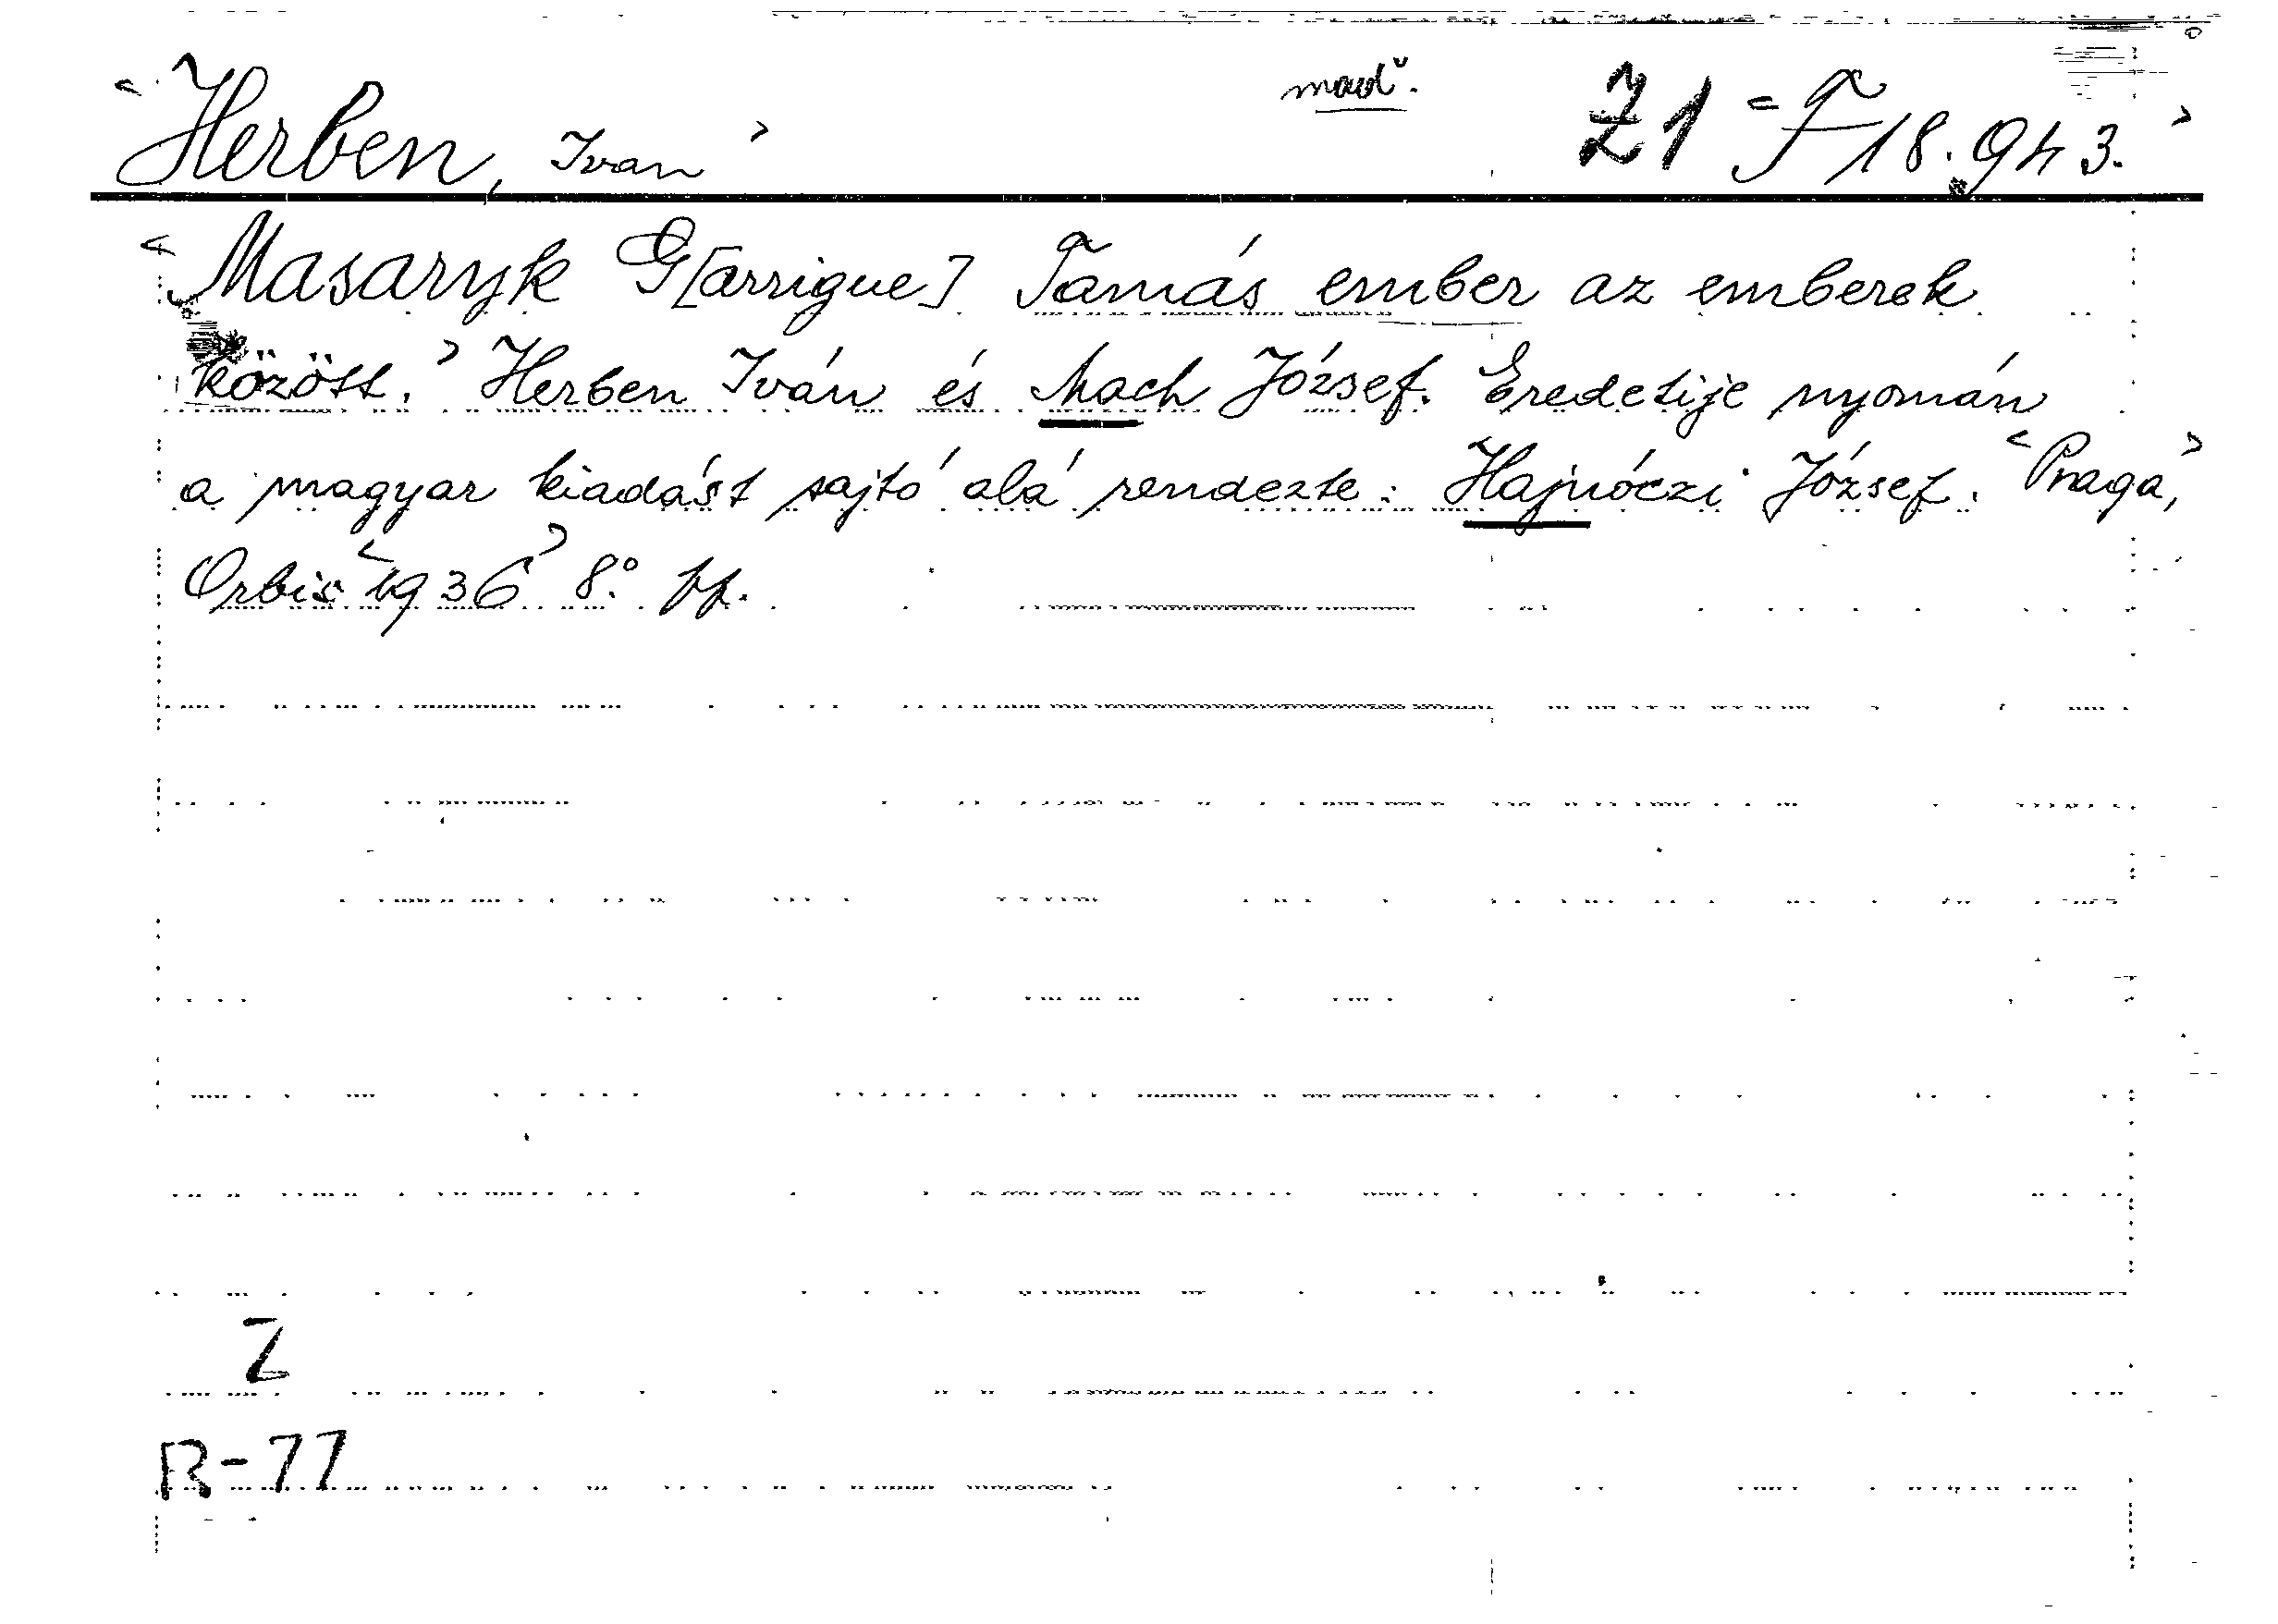 <Herben, Ivan> maď. Z1 <F 18.943.>
<Masaryk G[arrigue] Tamás ember az emberek
között.> Herben Iván és Mach József. Eredetije nyomán
a magyar kiadást sajtó alá rendezte: Hajnóczi József. <Praga,>
Orbis <1936> 8°.
Z
R-77